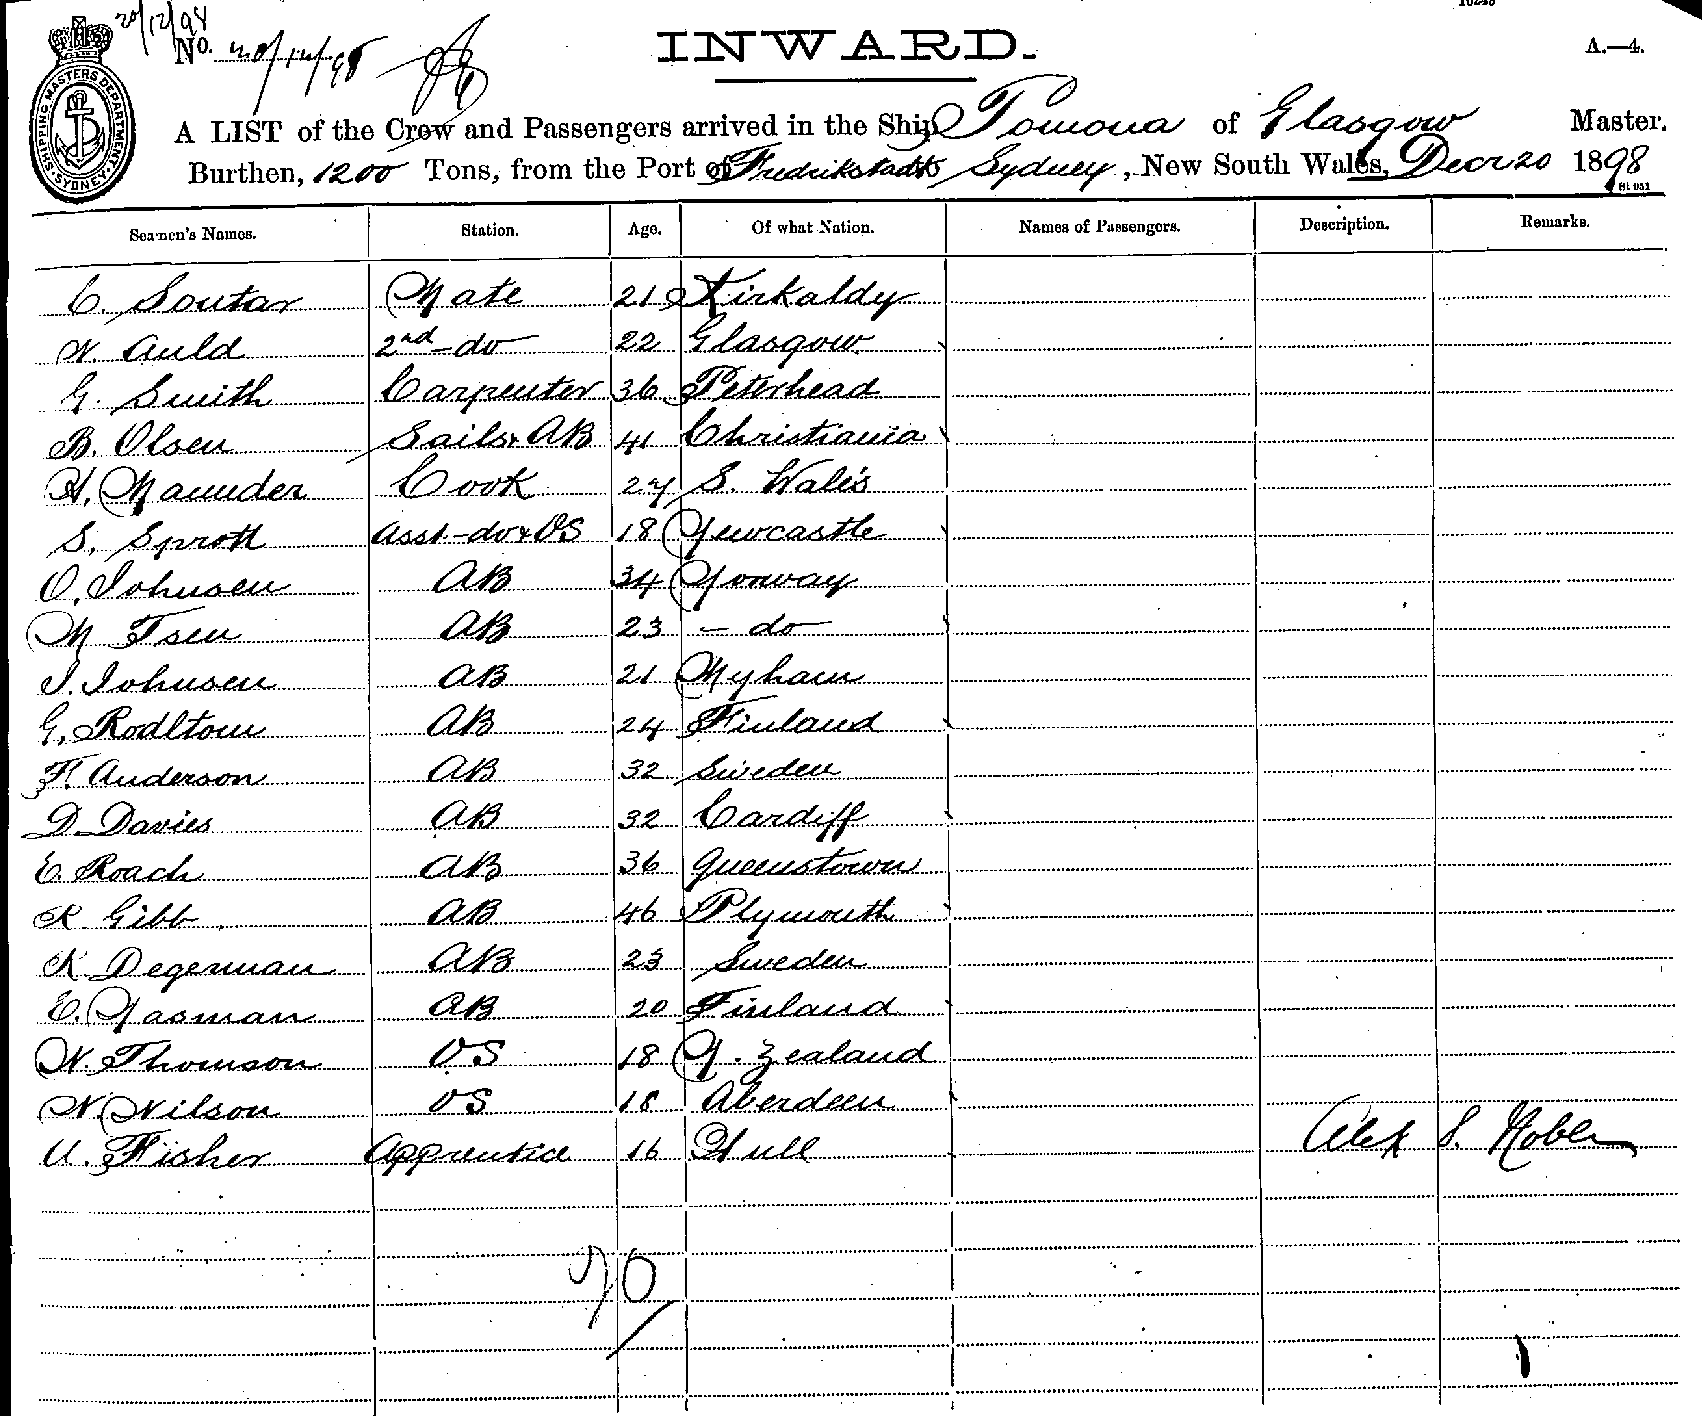 20/12/98
No. 20/12/98
INWARD.
A.—4.
SHIPPING MASTERS DEPARTMENT SYDNEY
A LIST of the Crew and Passengers arrived in the Ship Pomona of Glasgow Master.
Burthen, 1200 Tons, from the Port of Fredrikstadt Sydney, New South Wales, Decr 20 1898
Seamen's Names. Station. Age. Of what Nation. Names of Passengers. Description. Remarks.
C. Soutar Mate 21 Kirkaldy
W. Auld 2nd do 22 Glasgow
G. Smith Carpenter 36 Peterhead
B. Olsen Sails & AB 41 Christiania
H. Maunder Cook 27 S. Wales
S. Sprott Asst do & OS 18 Newcastle
O. Johnsen AB 34 Norway
M Tsen AB 23 – do
J. Johnsen AB 21 Myham
G. Rodltom AB 24 Finland
F. Anderson AB 32 Sweden
D Davies AB 32 Cardiff
E. Roach AB 36 Queenstown
R Gibb AB 46 Plymouth
K Degerman AB 23 Sweden
E. Nasman AB 20 Finland
W. Thomson OS 18 N. Zealand
W. Wilson OS 18 Aberdeen
U. Fisher Apprentice 16 Hull
Alex S. Noble